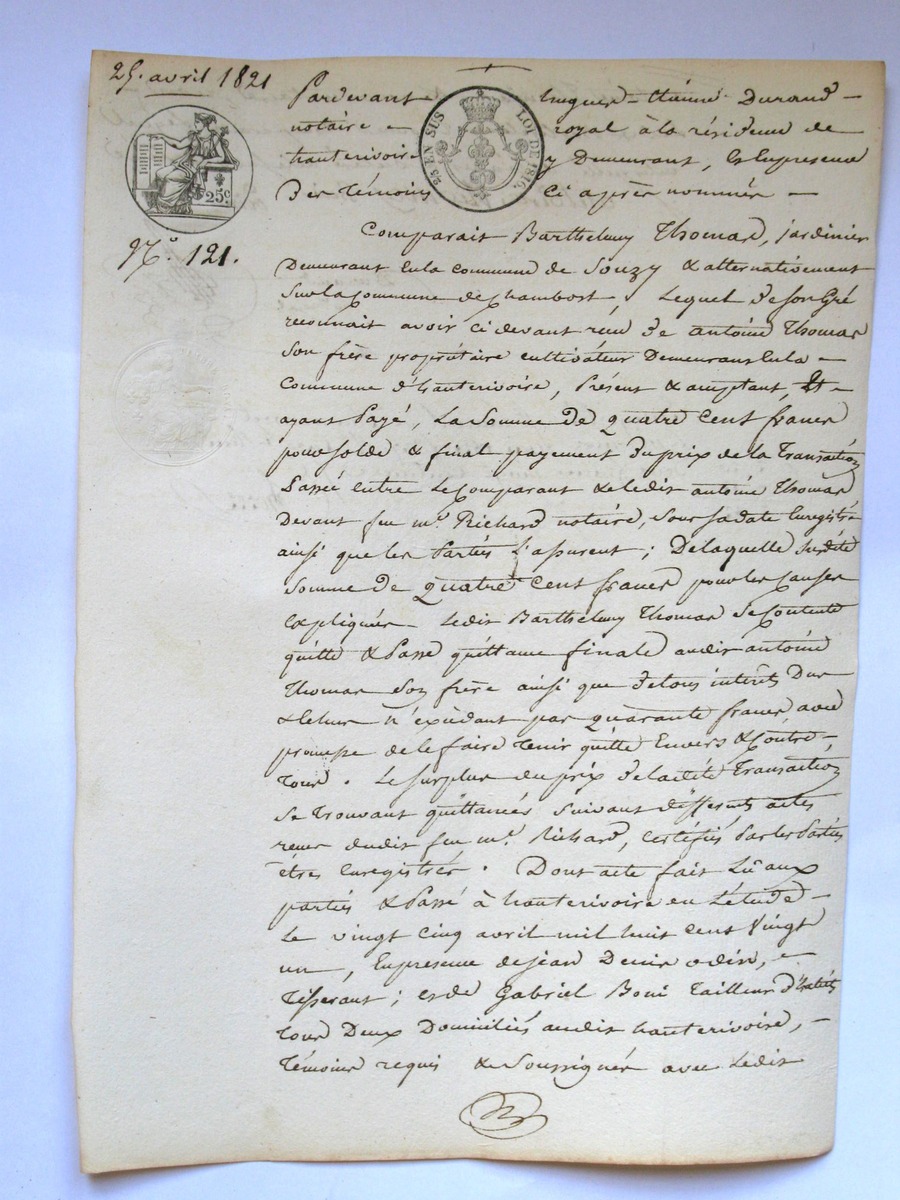 25. avril 1821
25 EN SUS LOI DE 1816.
25c
N.o 121.
Pardevant hugues-Etienne Durand -
notaire - royal à la résidence de
hauterivoire y Demeurant, Et Enpresence
Des Témoins ci après nommés -
Comparait Barthelemy Thomas, jardinier
Demeurant Enla commune de Souzy & alternativement
Sur la Commune de Chambost, Lequel de son Gré
reconnait avoir ci devant reçu de antoine Thomas
Son frère propriétaire cultivateur Demeurant Enla -
Commune d'hauterivoire, Présent & acceptant, Et -
ayant Payé, La Somme De quatre cent francs
pour solde & final payement du prix de la Transaction
Passée entre Le Comparant & Ledit antoine Thomas
Devant feu me. Richard notaire, Sous sa date Enregistré
ainsi que les Parties l'assurent; De laquelle Susdite
Somme De quatre cent francs pour les causes
Expliquées Ledit Barthelemy Thomas Se Contente
quitte & Passe quittance finale audit antoine
Thomas Son frère ainsi que de tous intérêts Dus
& Echus n'éxcédant pas quarante francs avec
promesse de le faire Tenir quitte Envers & Contre -
Tous. Le surplus du prix de la dite Transaction
Se trouvant quittancés Suivant différents actes
reçus dudit feu me. Richard, certifiés Par les Parties
êtres Enregistrés. Dont acte fait Lû aux
parties & Passé à hauterivoire en L'étude -
Le vingt cinq avril mil huit cent Vingt
un, Enpresence de jean Denis odin, -
Tisserant; et de Gabriel Boni Tailleur d'habits
Tous Deux Domiciliés audit hauterivoire, -
Témoins requis & Soussignés avec Ledit